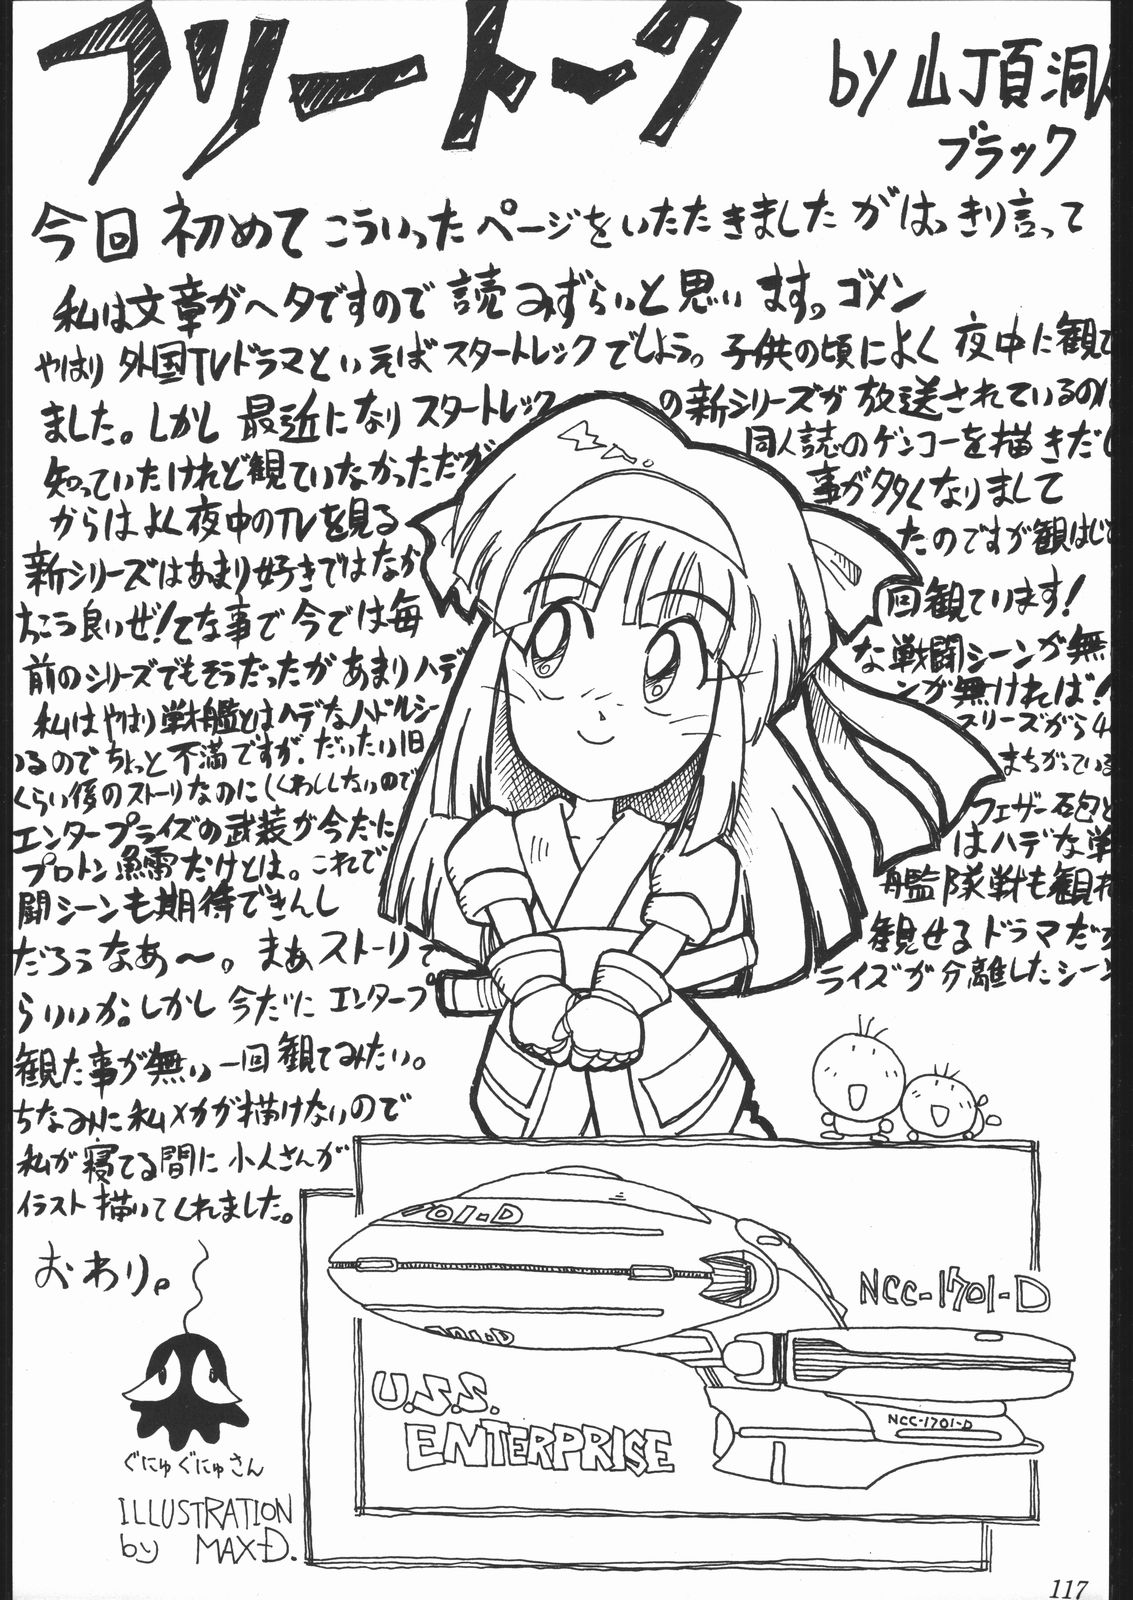 フリートーク
by 山丁頂洞人
ブラック
今回 初めて こういった ページを いたたきました がはっきり言って
私は文章がヘタですので 読みずらいと思います。ゴメン
やはり 外国TVドラマといえば スタートレックでしょう。子供の頃によく 夜中に観て
ました。しかし 最近になり スタートレック の新シリーズが 放送されているのは
知っていたけれど観ていなかっただが 同人誌のゲンコーを描きだし
からはよく夜中のTVを見る 事が多くなりまして
新シリーズはあまり好きではなか たのですが観はじ
ちこう良いぜ!てな事で今では毎 回観ています!
前のシリーズでもそうだったが あまりハデ な戦闘シーンが無
私はやはり戦艦とはハデなハドルシー ンが無ければ!
いるのでちょっと 不満ですが、だいたい旧 スリーズから4
くらい後のストーリなのに(くわしくしないので まちがっている
エンタープライズの武装が今だに フェザー砲と
プロトン魚雷だけとは。これで はハデな戦
闘シーンも期待できんし 艦隊戦も観れ
だろうなあ〜。まあストーリで 観せるドラマだか
らいいか。しかし 今だに エンタープ ライズが分離したシーン
観た事が無い 一回 観てみたい。
ちなみに私メカが描けないので
私が寝てる間に 小人さんが
イラスト描いてくれました。
おわり。
ぐにゅぐにゅさん
ILLUSTRATION
by MAX-D.
01-D
01-D
NCC-1701-D
NCC-1701-D
U.S.S.
ENTERPRISE
117